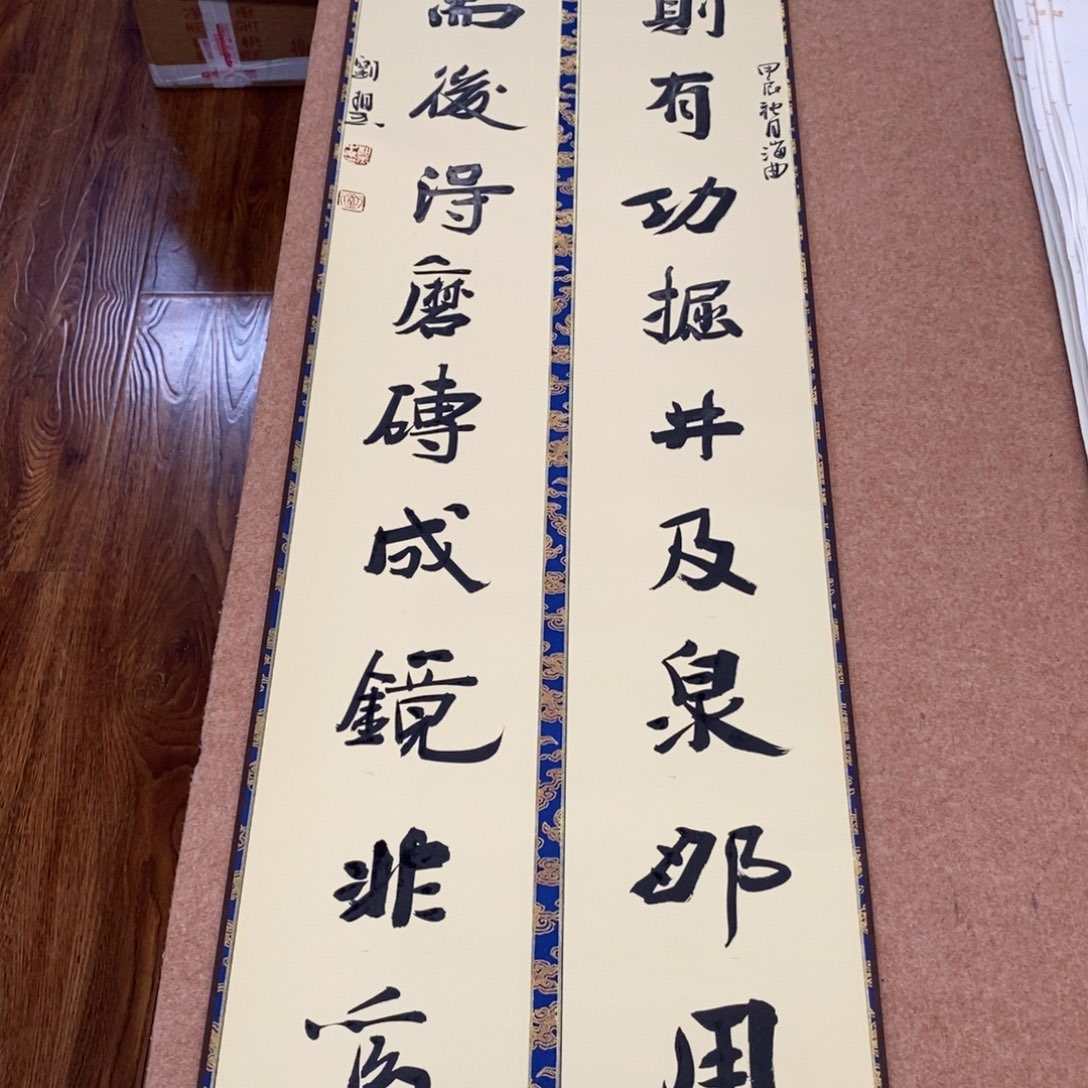 則有功掘井及泉那用
甲辰秋月海曲
後得磨磚成鏡非
劉